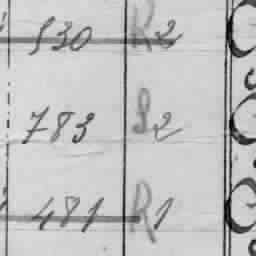 530 R2
783 S2
481 R1